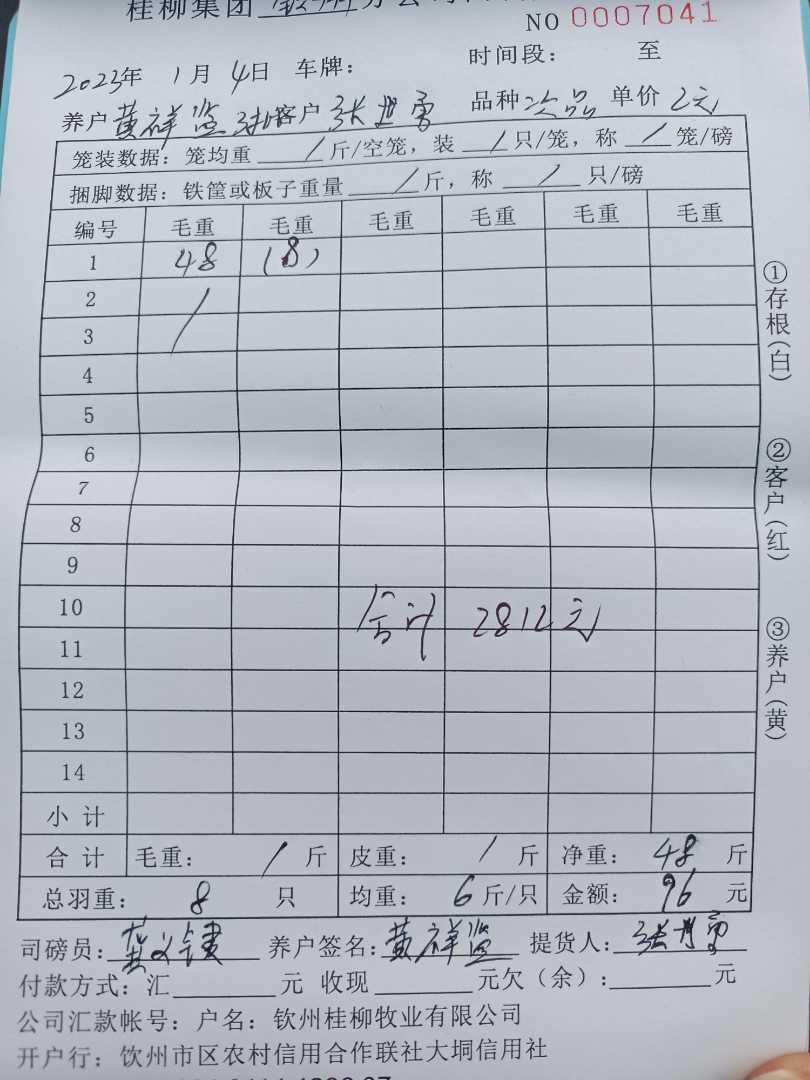 桂柳集团 钦州
NO 0007041
2023年 1月 4日 车牌: 时间段: 至
养户 黄祥监 客户 张世勇 品种 次品 单价 2元
笼装数据: 笼均重 / 斤/空笼, 装 / 只/笼, 称 / 笼/磅
捆脚数据: 铁筐或板子重量 / 斤, 称 / 只/磅
编号 毛重 毛重 毛重 毛重 毛重 毛重
1 48 (8)
2 /
3
4
5
6
7
8
9
10 合计 2812元
11
12
13
14
小 计
合 计 毛重: / 斤 皮重: / 斤 净重: 48 斤
总羽重: 8 只 均重: 6 斤/只 金额: 96 元
司磅员: 养户签名: 黄祥监 提货人: 张世勇
付款方式: 汇 元 收现 元欠(余): 元
公司汇款帐号: 户名: 钦州桂柳牧业有限公司
开户行: 饮州市区农村信用合作联社大垌信用社
①存根(白)
②客户(红)
③养户(黄)